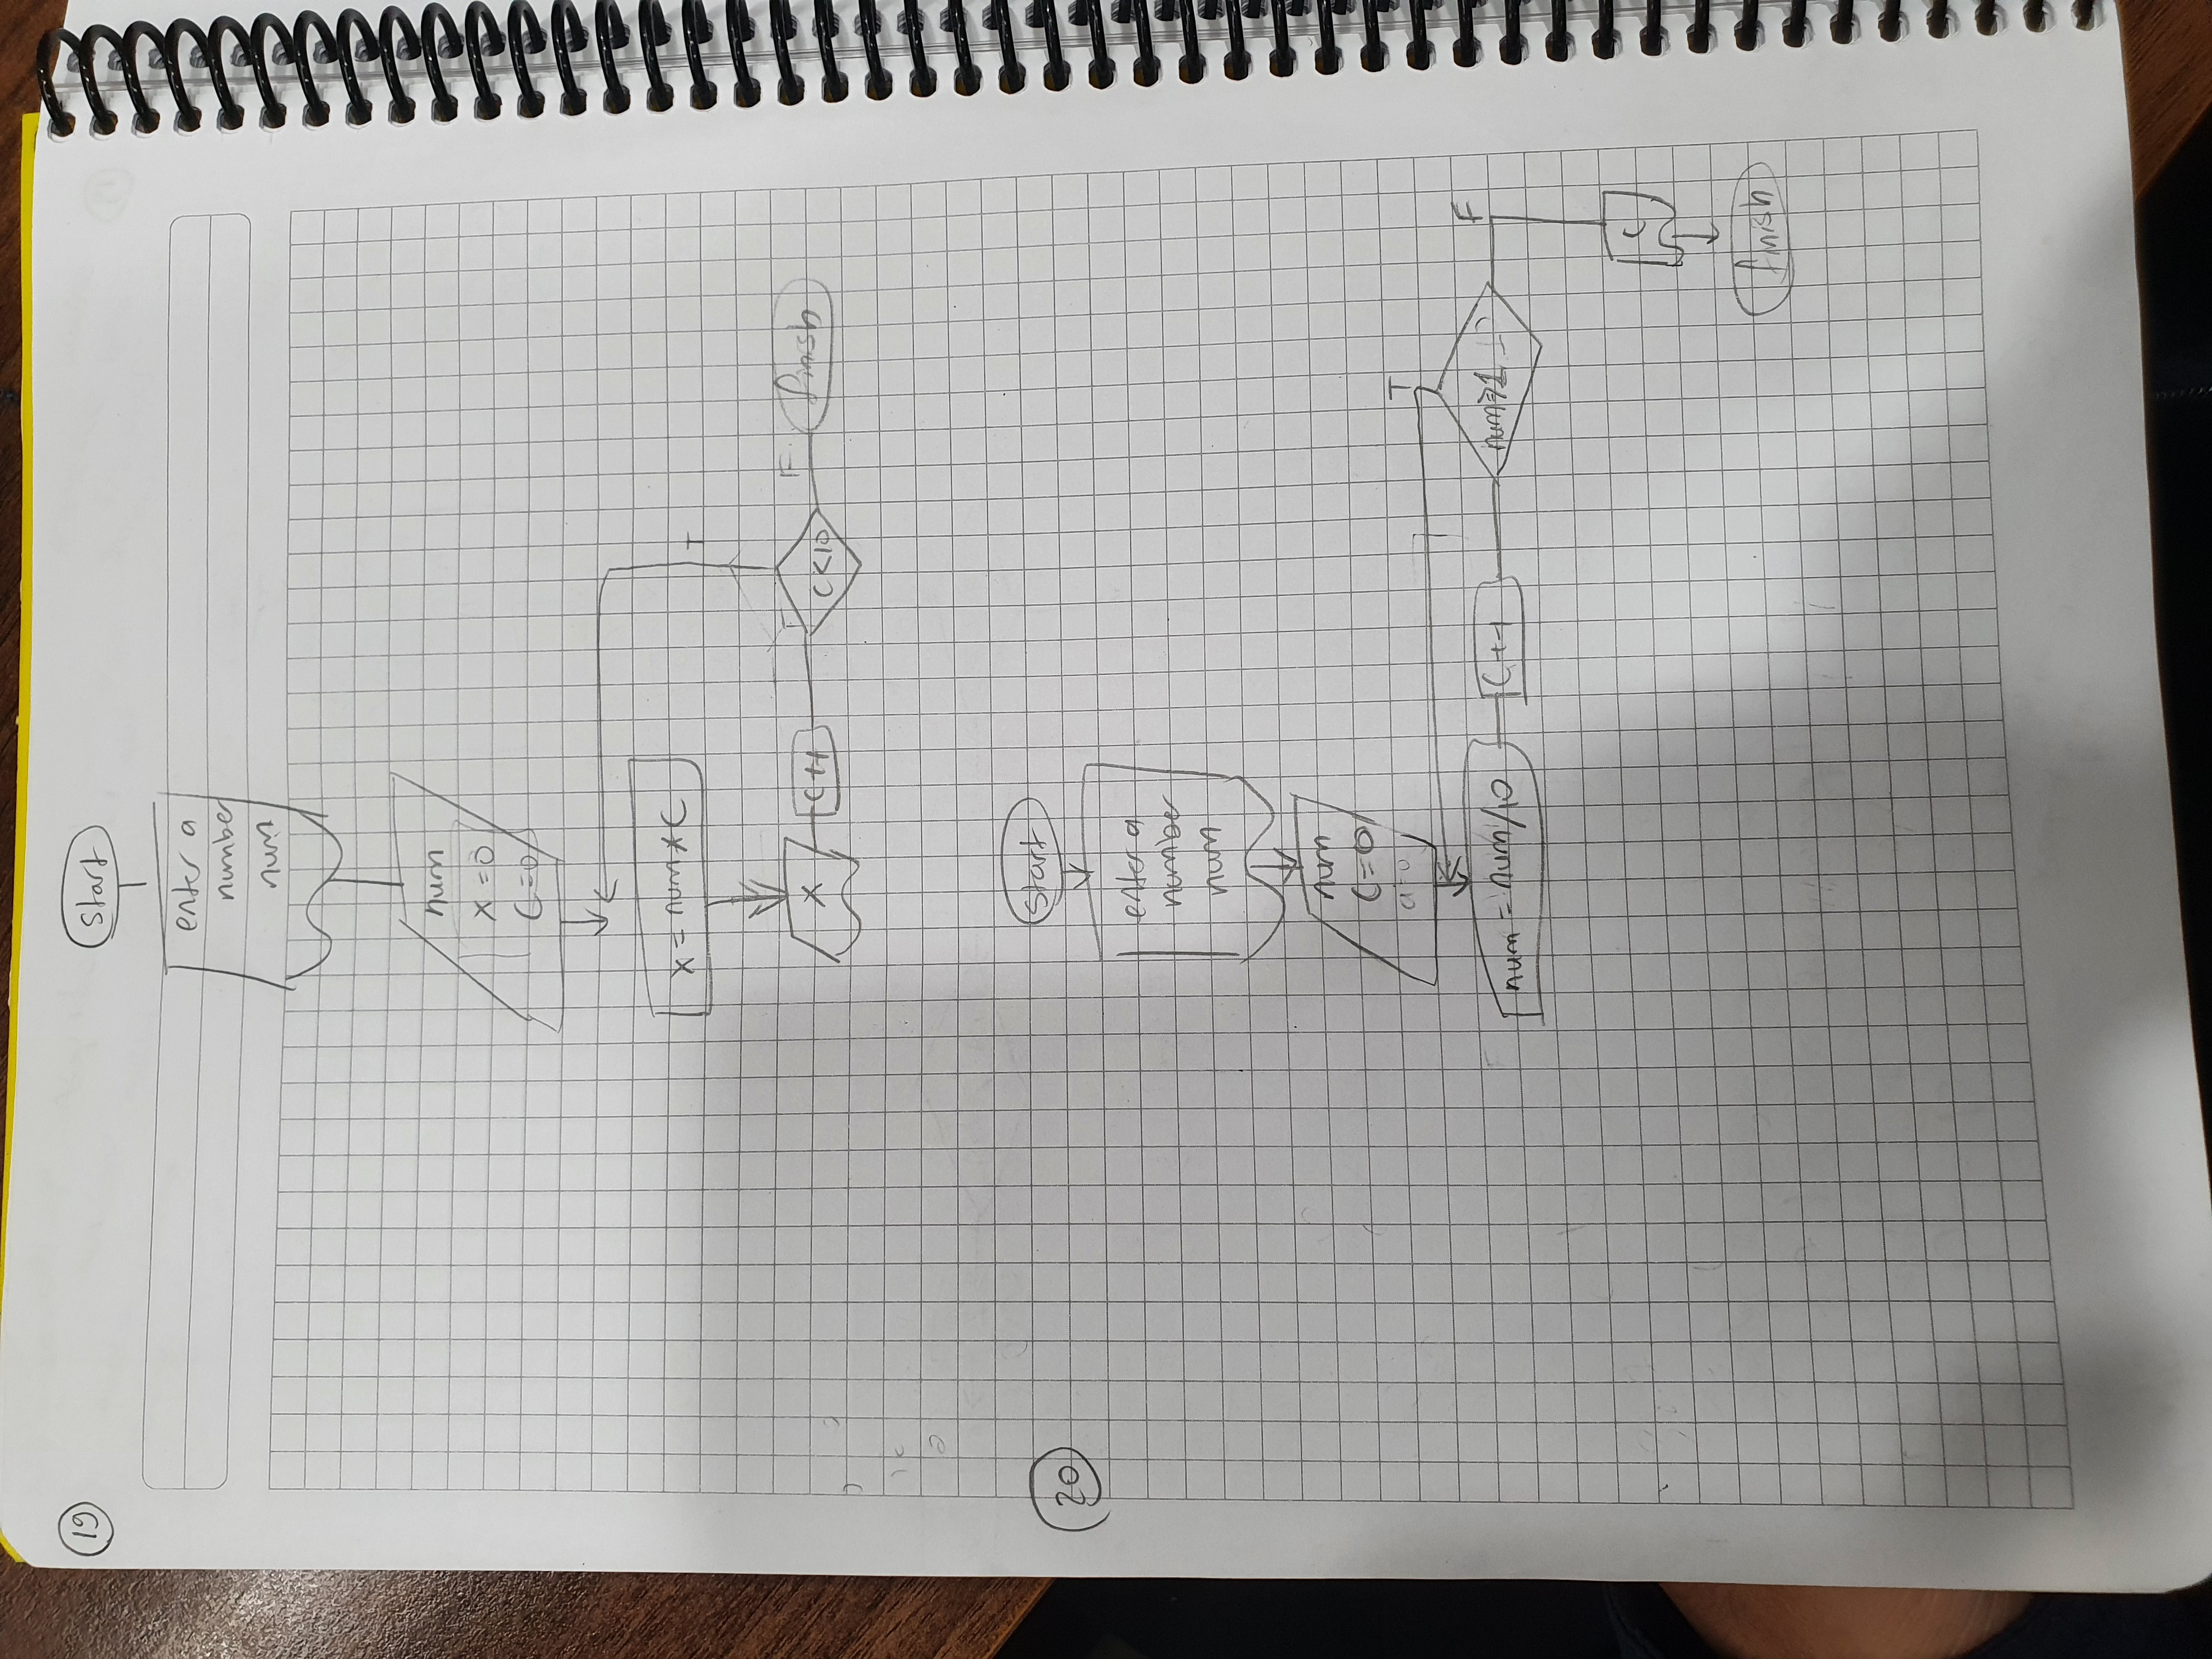 19
Start
enter a
number
num
num
x = 0
C = 0
x = num * C
x
C++
C<10
T
F
finish
20
Start
enter a
number
num
num
C = 0
a=0
num = num/10
C++
T
F
C
finish